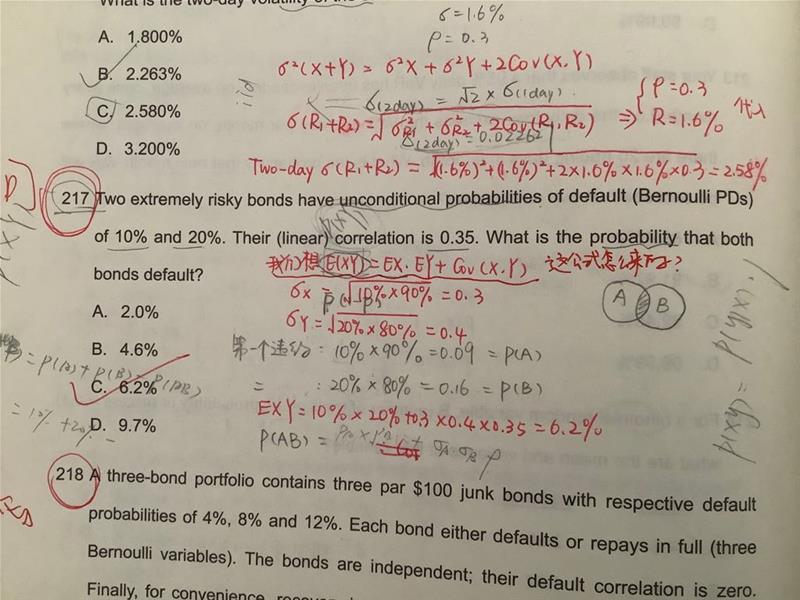 What is the two-day volatility
σ=1.6%
ρ=0.3
A. 1.800%
σ²(X+Y) = σ²X + σ²Y + 2Cov(X.Y)
B. 2.263%
iid
σ(2day) = √2 × σ(1day)
C. 2.580%
σ(R1+R2) = √σ²R1 + σ²R2 + 2Cov(R1,R2) ⇒ { ρ=0.3 R=1.6% 代入
(2day) = 0.02262
D. 3.200%
Two-day σ(R1+R2) = √(1.6%)²+(1.6%)²+2×1.6%×1.6%×0.3=2.58%
217 Two extremely risky bonds have unconditional probabilities of default (Bernoulli PDs)
of 10% and 20%. Their (linear) correlation is 0.35. What is the probability that both
bonds default?
我们想 E(XY)=EX.EY+Cov(X.Y) 这公式怎么来的?
A B
A. 2.0%
σX = √10%×90% = 0.3
P(B)
σY = √20%×80% = 0.4
B. 4.6%
第一个违约: 10%×90%=0.09 = P(A)
= P(A)+P(B)-P(AB)
C. 6.2%
= : 20%×80%=0.16 = P(B)
=10%+20%-
D. 9.7%
EXY=10%×20%+0.3×0.4×0.35=6.2%
P(AB) = + σA σB ρ
218 A three-bond portfolio contains three par $100 junk bonds with respective default
probabilities of 4%, 8% and 12%. Each bond either defaults or repays in full (three
Bernoulli variables). The bonds are independent; their default correlation is zero.
Finally, for convenience,